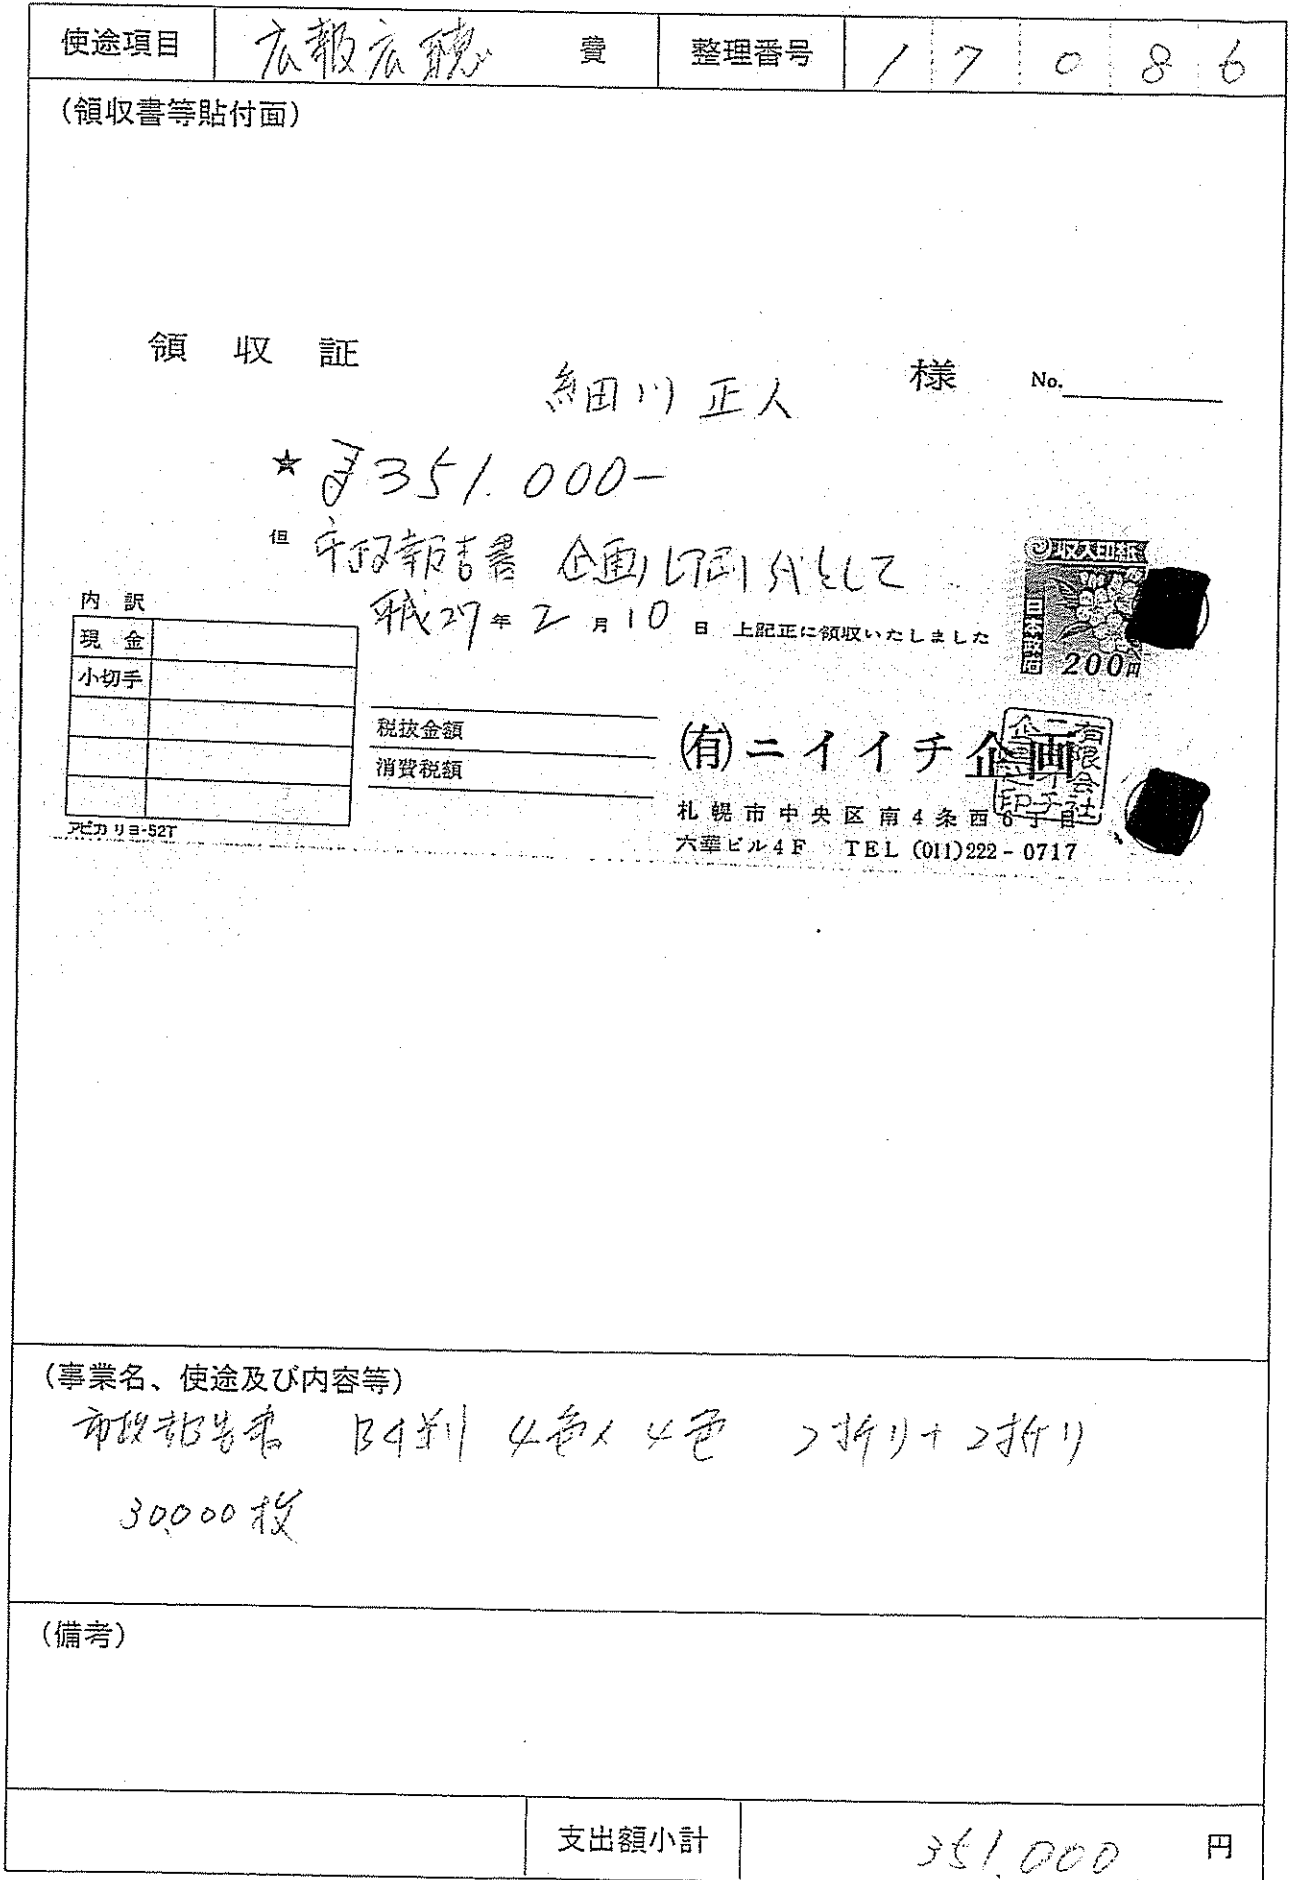 使途項目 広報広聴 費 整理番号 17086
(領収書等貼付面)
領収証
細川正人 様 No.
★ ¥351.000-
但 市政報告書 企画印刷代として
平成27年2月10日 上記正に領収いたしました
収入印紙
日本政府
200円
内訳
現金
小切手
税抜金額
消費税額
アピカ リヨ-52T
(有)ニイイチ企画
札幌市中央区南4条西6丁目
六華ビル4F TEL (011)222-0717
(事業名、使途及び内容等)
市政報告書 B4判 4色×4色 2折り+2折り
30,000枚
(備考)
支出額小計 351.000 円